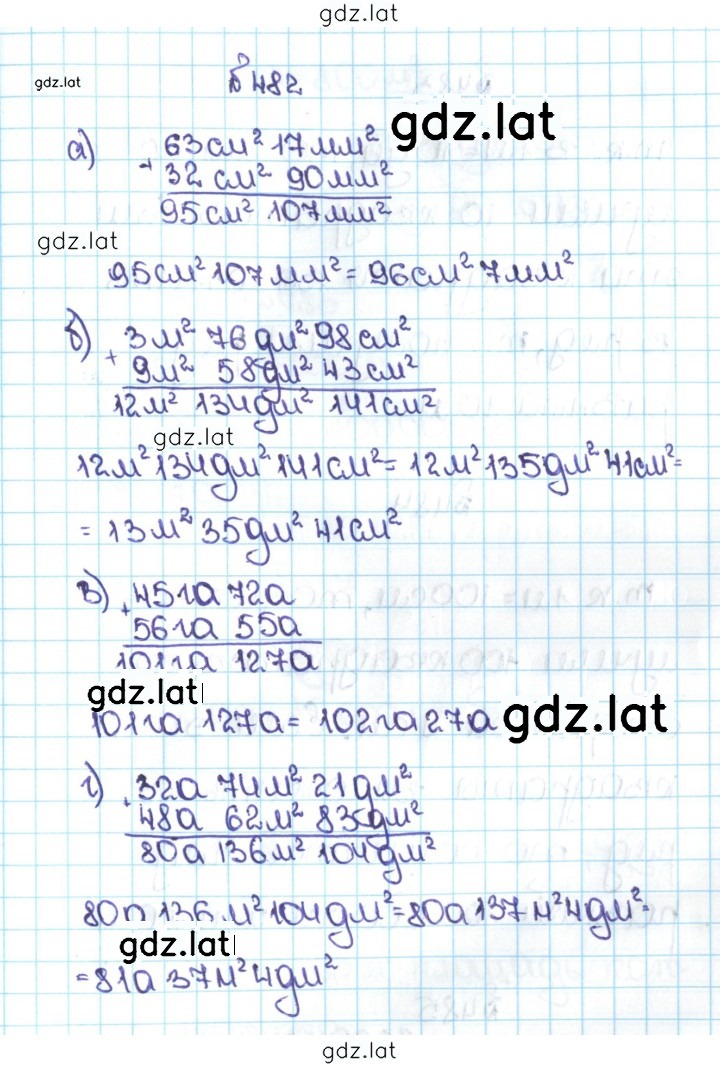 gdz.lat
gdz.lat
№ 482
gdz.lat
а) 63 см² 17 мм²
+ 32 см² 90 мм²
95 см² 107 мм²
gdz.lat
95 см² 107 мм² = 96 см² 7 мм²
б) 3 м² 76 дм² 98 см²
+ 9 м² 58 дм² 43 см²
12 м² 134 дм² 141 см²
gdz.lat
12 м² 134 дм² 141 см² = 12 м² 135 дм² 41 см² =
= 13 м² 35 дм² 41 см²
в) 45 га 72 а
+ 56 га 55 а
101 га 127 а
gdz.lat
101 га 127 а = 102 га 27 а
gdz.lat
г) 32 а 74 м² 21 дм²
+ 48 а 62 м² 83 дм²
80 а 136 м² 104 дм²
80 а 136 м² 104 дм² = 80 а 137 м² 4 дм² =
gdz.lat
= 81 а 37 м² 4 дм²
gdz.lat